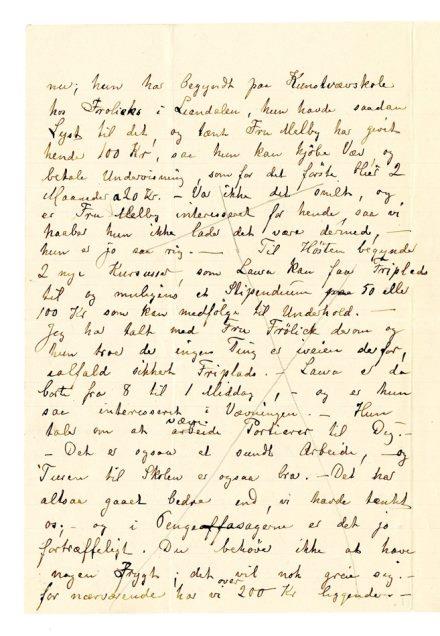 nu; hun har begyndt paa Kunstvævskole
hos Frølichs i Leandalen, hun havde saadan
Lyst til det og tænk Fru Melby har givet
hende 100 Kr, saa hun kan kjøbe Væv og
betale Undervisning, som for det første blir 2
Maaneder a 20 Kr. – Var ikke det snilt, og
er Fru Melby interesseret for hende, saa vi
haaber hun ikke lader det være dermed, –
hun er jo saa rig. – Til Høsten begynder
2 nye Kursuser, som Laura kan faa Friplads
til og muligens et Stipendium paa 50 eller
100 Kr som kan medfølge til Underhold. –
Jeg har talt med Fru Frölich derom og
hun tror der ingen Ting er iveien derfor,
ialfald sikkert Friplads. – Laura er da
borte fra 8 til 1 Middag, – og er hun
saa interesseret i Vævningen. – Hun
taler om at væve arbeide Portierer til Dig. –
– Det er ogsaa et sundt Arbeide, – og
Turen til Skolen er ogsaa bra. – Det har
altsaa gaaet bedre end vi havde tænkt
os; – og i Pengesagerne er det jo
fortræffeligt. Du behøver ikke at have
nogen Frygt; det vil nok greie sig. –
for nærværende har vi over 200 Kr liggende. –